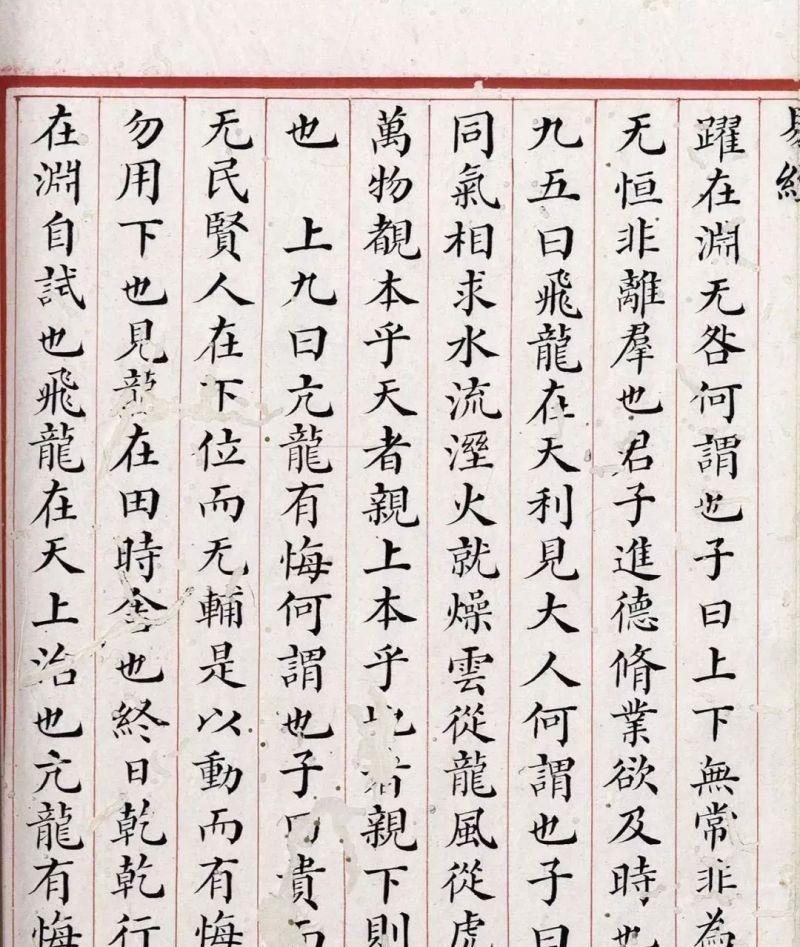 易經
躍在淵无咎何謂也子曰上下無常非為
无恒非離羣也君子進德脩業欲及時也
九五曰飛龍在天利見大人何謂也子曰
同氣相求水流溼火就燥雲從龍風從虎
萬物覩本乎天者親上本乎地者親下則
也　上九曰亢龍有悔何謂也子曰貴而
无民賢人在下位而无輔是以動而有悔
勿用下也見龍在田時舍也終日乾乾行
在淵自試也飛龍在天上治也亢龍有悔